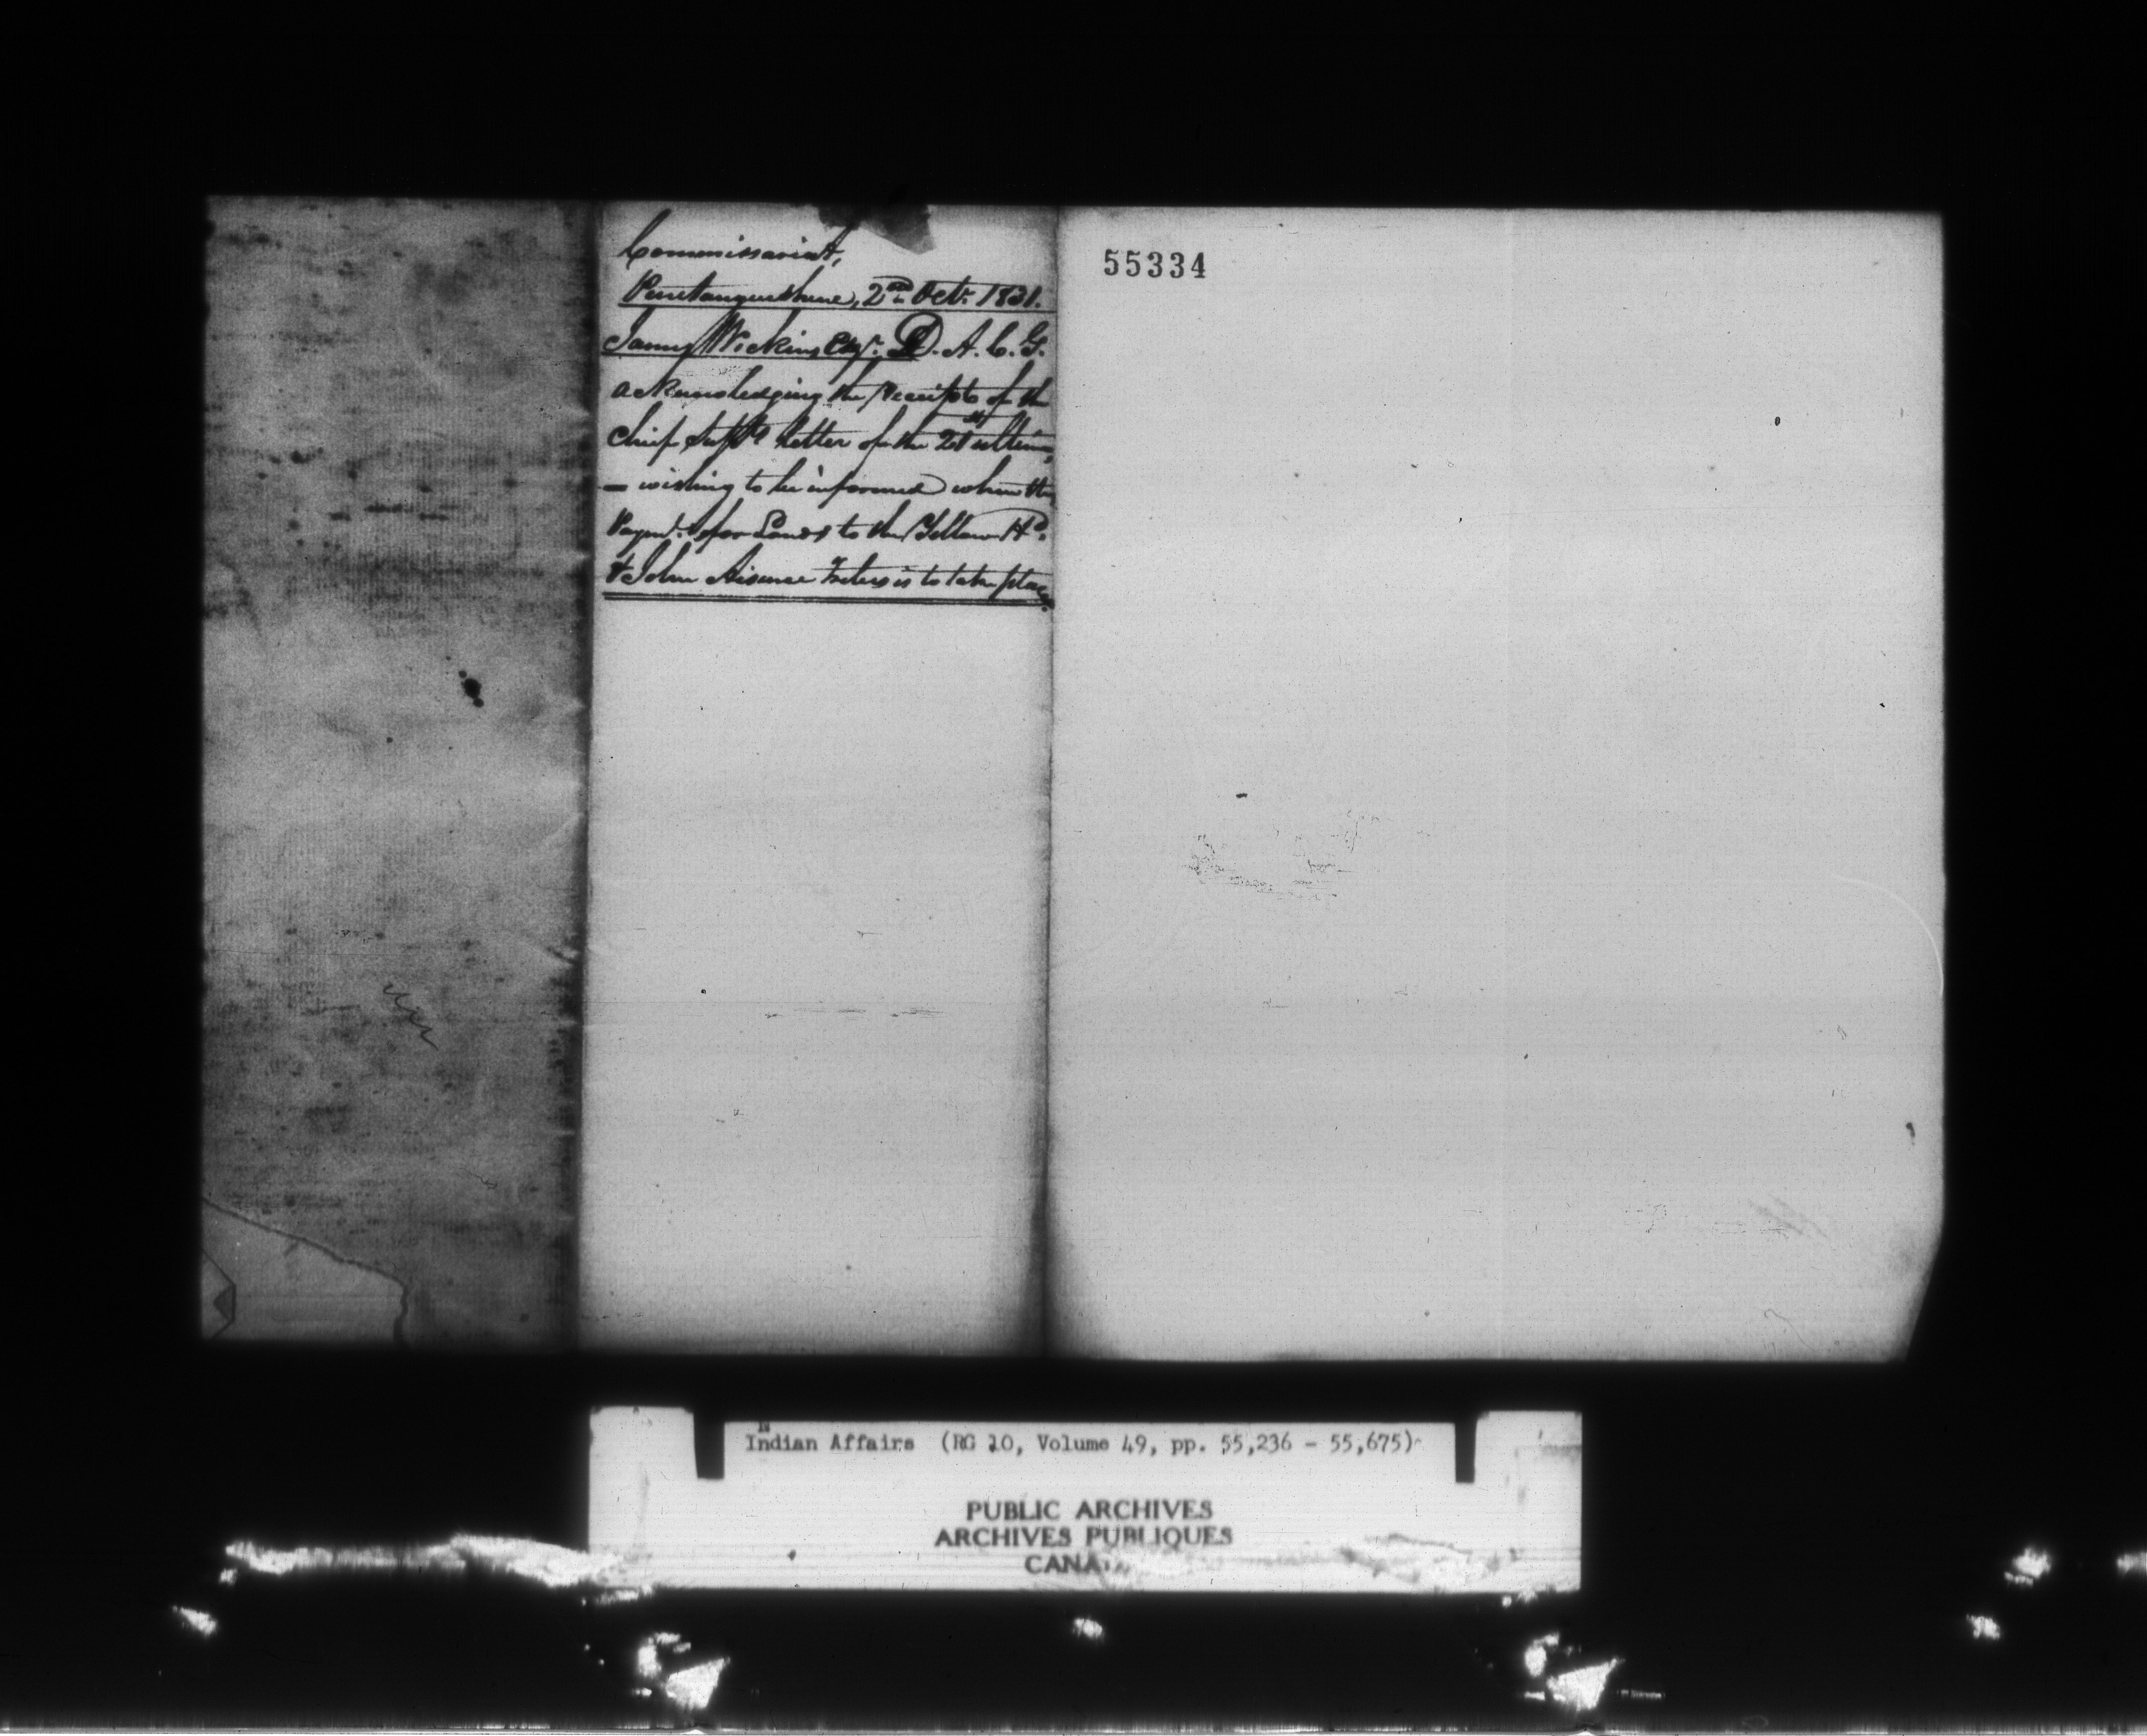 Commissariat,
Penetanguishene, 2nd Octr. 1831.
James Wickins Esqr. D. A. C. G.
acknowledging the receipts of the
Chief Supts letter of the 21st ultimo,
— wishing to be informed when the
Paymt. for Lands to the Yellow Hd.
& John Aisance Tribes is to take place.
55334
Indian Affairs (RG 10, Volume 49, pp. 55,236 - 55,675)
PUBLIC ARCHIVES
ARCHIVES PUBLIQUES
CANA